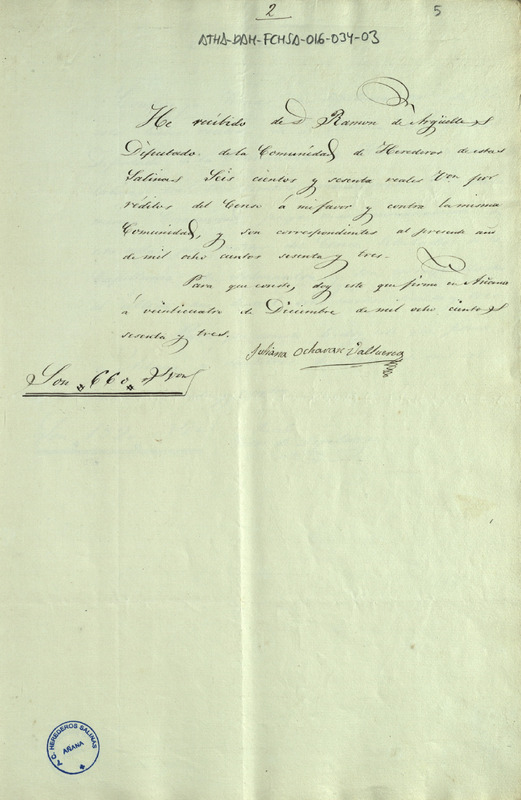 2
5
ATHA-DAH-FCHSA-016-034-03
He recibido de D. Ramon de Argüelles
Diputado de la Comunidad de Herederos de estas
Salinas Seis cientos y sesenta reales Von por
réditos del Censo á mi favor y contra la misma
Comunidad, y son correspondientes al presente año
de mil ocho cientos sesenta y tres.
Para que conste, doy este que firmo en Añana
á veinticuatro de Diciembre de mil ocho cientos
sesenta y tres.
Juliana Ochavarc Valluerca
Son "660" Rs Von
C. HEREDEROS SALINAS
AÑANA